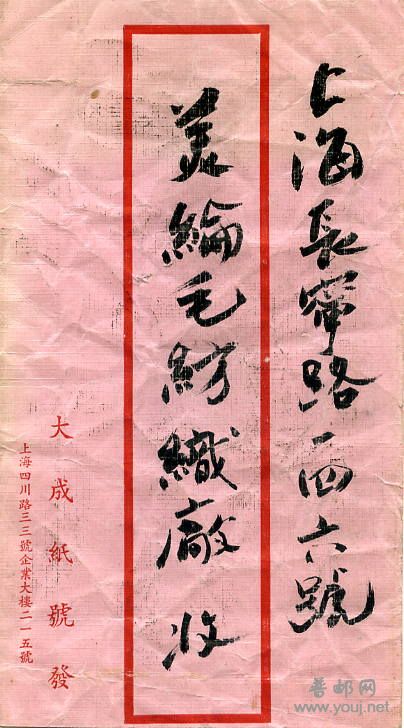 上海長甯路一四六號
美綸毛紡織廠 收
大成紙號發
上海四川路三三號企業大樓二一五號
普邮网
www.youj.net